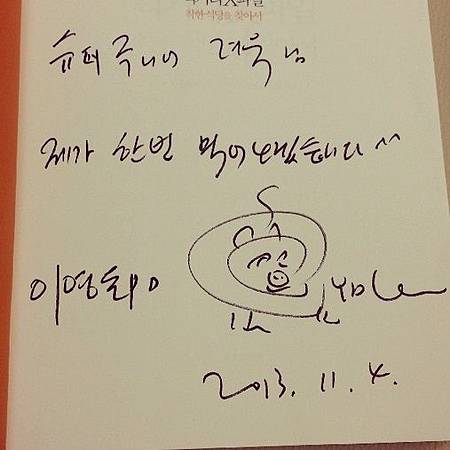 먹거리X파일
착한 식당을 찾아서
슈퍼주니어 려욱님
제가 한번 먹어보겠습니다 ^^
이영돈 YDLee
2013. 11. 4.